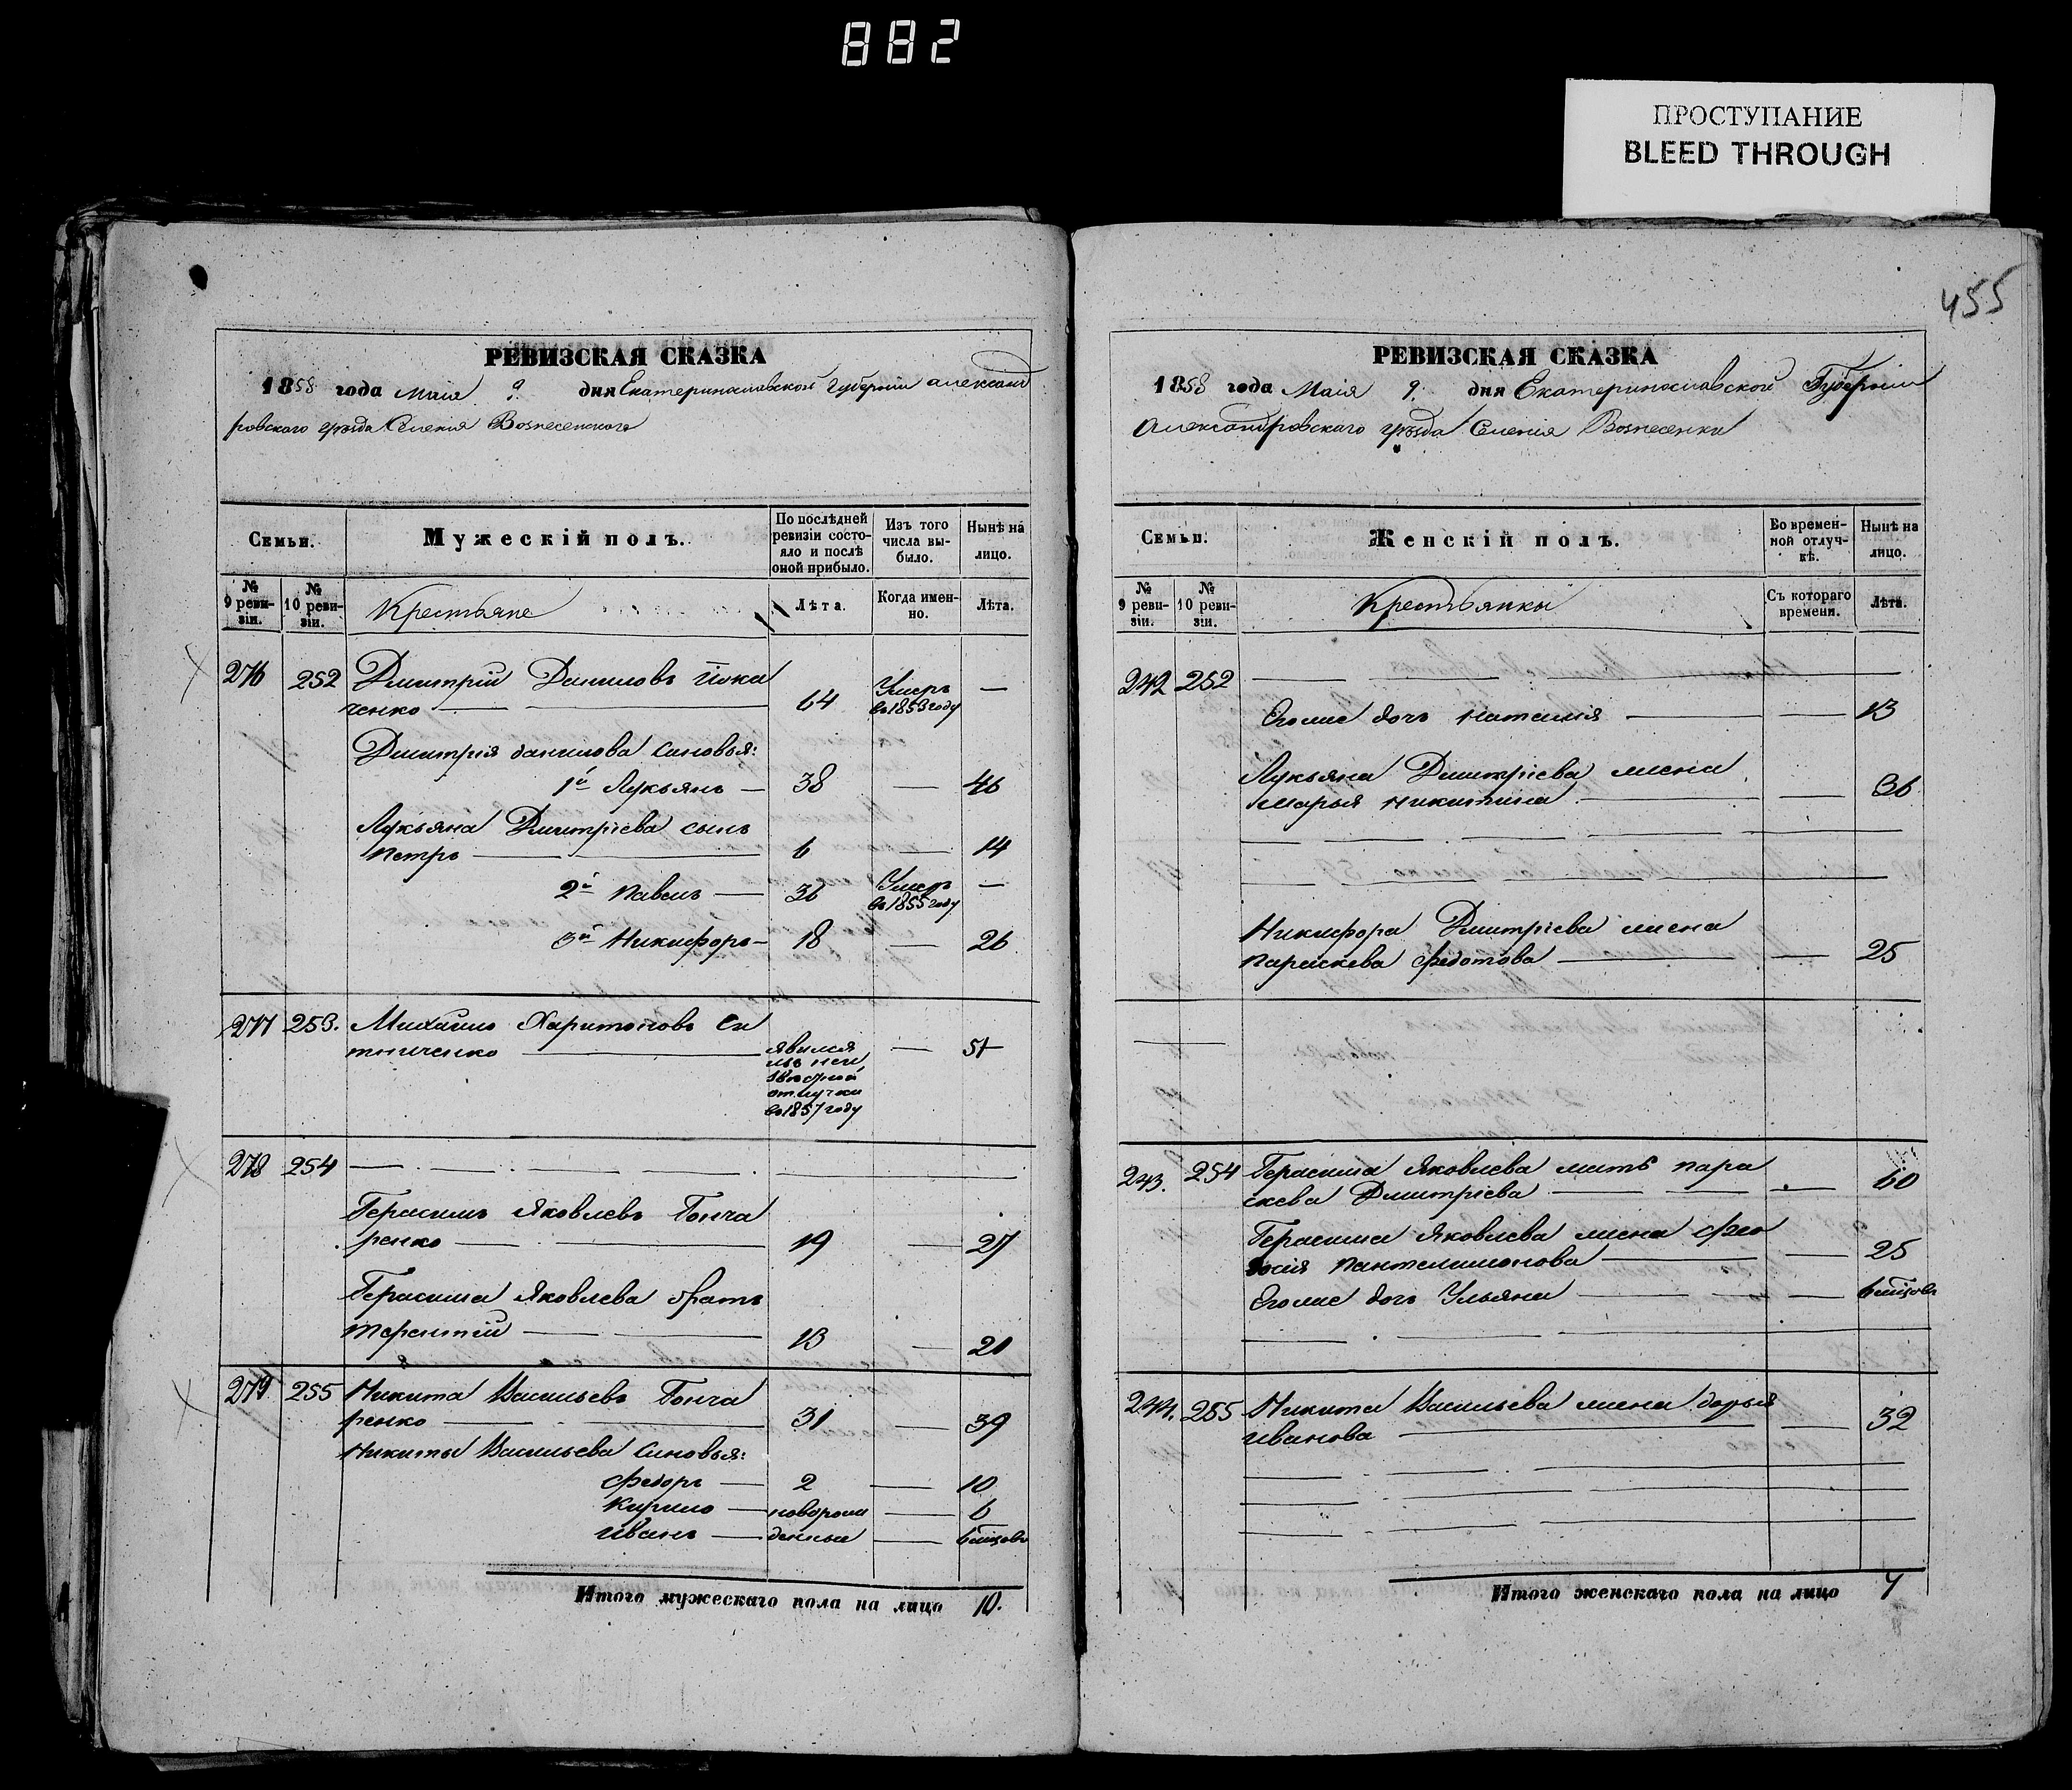 882
ПРОСТУПАНИЕ
BLEED THROUGH
455
РЕВИЗСКАЯ СКАЗКА
1858 года Маія 9. дня Екатеринославской Губерніи Александ
ровского уѣзда Селенія Вознесенского
Семьи.
Мужескій полъ.
По послѣдней ревизіи состояло и послѣ оной прибыло.
Изъ того числа выбыло.
Нынѣ на лицо.
№ 9 ревизіи.
№ 10 ревизіи.
Крестьяне
Лѣта.
Когда именно.
Лѣта.
276 252 Дмитрій Даниловъ
ченко — 64 Умеръ въ 1853 году —
Дмитрія Данилова сыновья:
1й Лукьянъ — 38 — 46
Лукьяна Дмитріева сынъ
Петръ — 6 — 14
2й Павелъ — 36 Умеръ въ 1855 году —
3й Никифоръ — 18 — 26
277 253. Михайло Харитоновъ Си
тниченко — явился
изъ
отлучки
въ 1857 году — 51
278 254 —
Герасимъ Яковлевъ Гонча
ренко — 19 — 27
Герасима Яковлева братъ
Терентій — 13 — 21
279 255 Никита Васильевъ Гонча
ренко — 31 — 39
Никиты Васильева сыновья:
Федоръ — 2 — 10
Кирило — новорож — 6
Иванъ — денные — 6 мѣсяцовъ
Итого мужескаго пола на лицо 10.
РЕВИЗСКАЯ СКАЗКА
1858 года Маія 9. дня Екатеринославской Губерніи
Александровскаго уѣзда Селенія Вознесенки
Семьи.
Женскій полъ.
Во временной отлучкѣ.
Нынѣ на лицо.
№ 9 ревизіи.
№ 10 ревизіи.
Крестьянки
Съ котораго времени.
Лѣта.
242 252 —
Егоже дочь Наталия — — 13
Лукьяна Дмитріева жена
Марья Никитина — — 36
Никифора Дмитріева жена
Параскева Федотова — — 25
243. 254 Герасима Яковлева мать Пара
скева Дмитріева — — 60
Герасима Яковлева жена Фео
досія Пантелимонова — — 25
Егоже дочь Ульяна — — 6 мѣсяцовъ
244. 255 Никита Васильева жена Дарья
Иванова — — 32
Итого женскаго пола на лицо 7